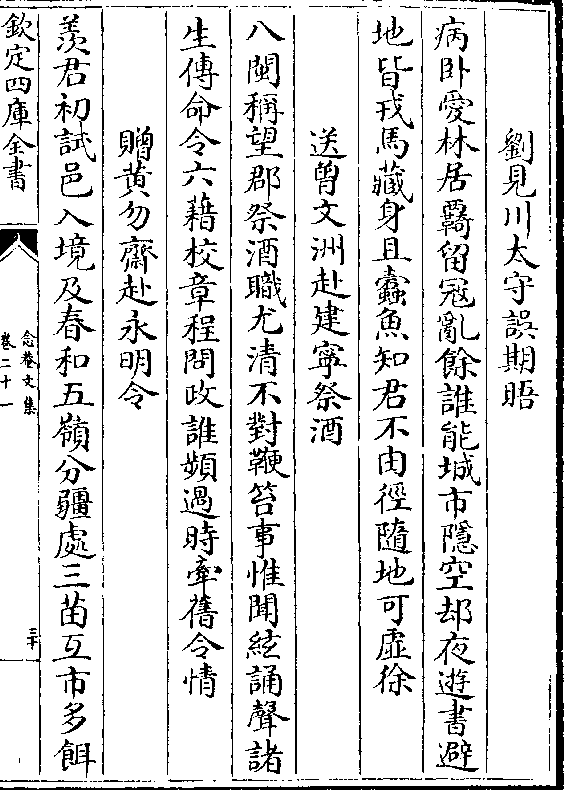 劉見川太守誤期晤
病卧愛林居羈留冠亂餘誰能城市隱空却夜遊書避
地皆戎馬藏身且蠹魚知君不由徑隨地可虛徐
送曾文洲赴建寧祭酒
八閩稱望郡祭酒職尤清不對鞭笞事惟聞絃誦聲諸
生傳命令六藉校章程問政誰頻過時牽舊令情
贈黃勿齋赴永明令
羨君初試邑入境及春和五嶺分疆處三苗互市多餌
欽定四庫全書
念菴文集
卷二十一
三十